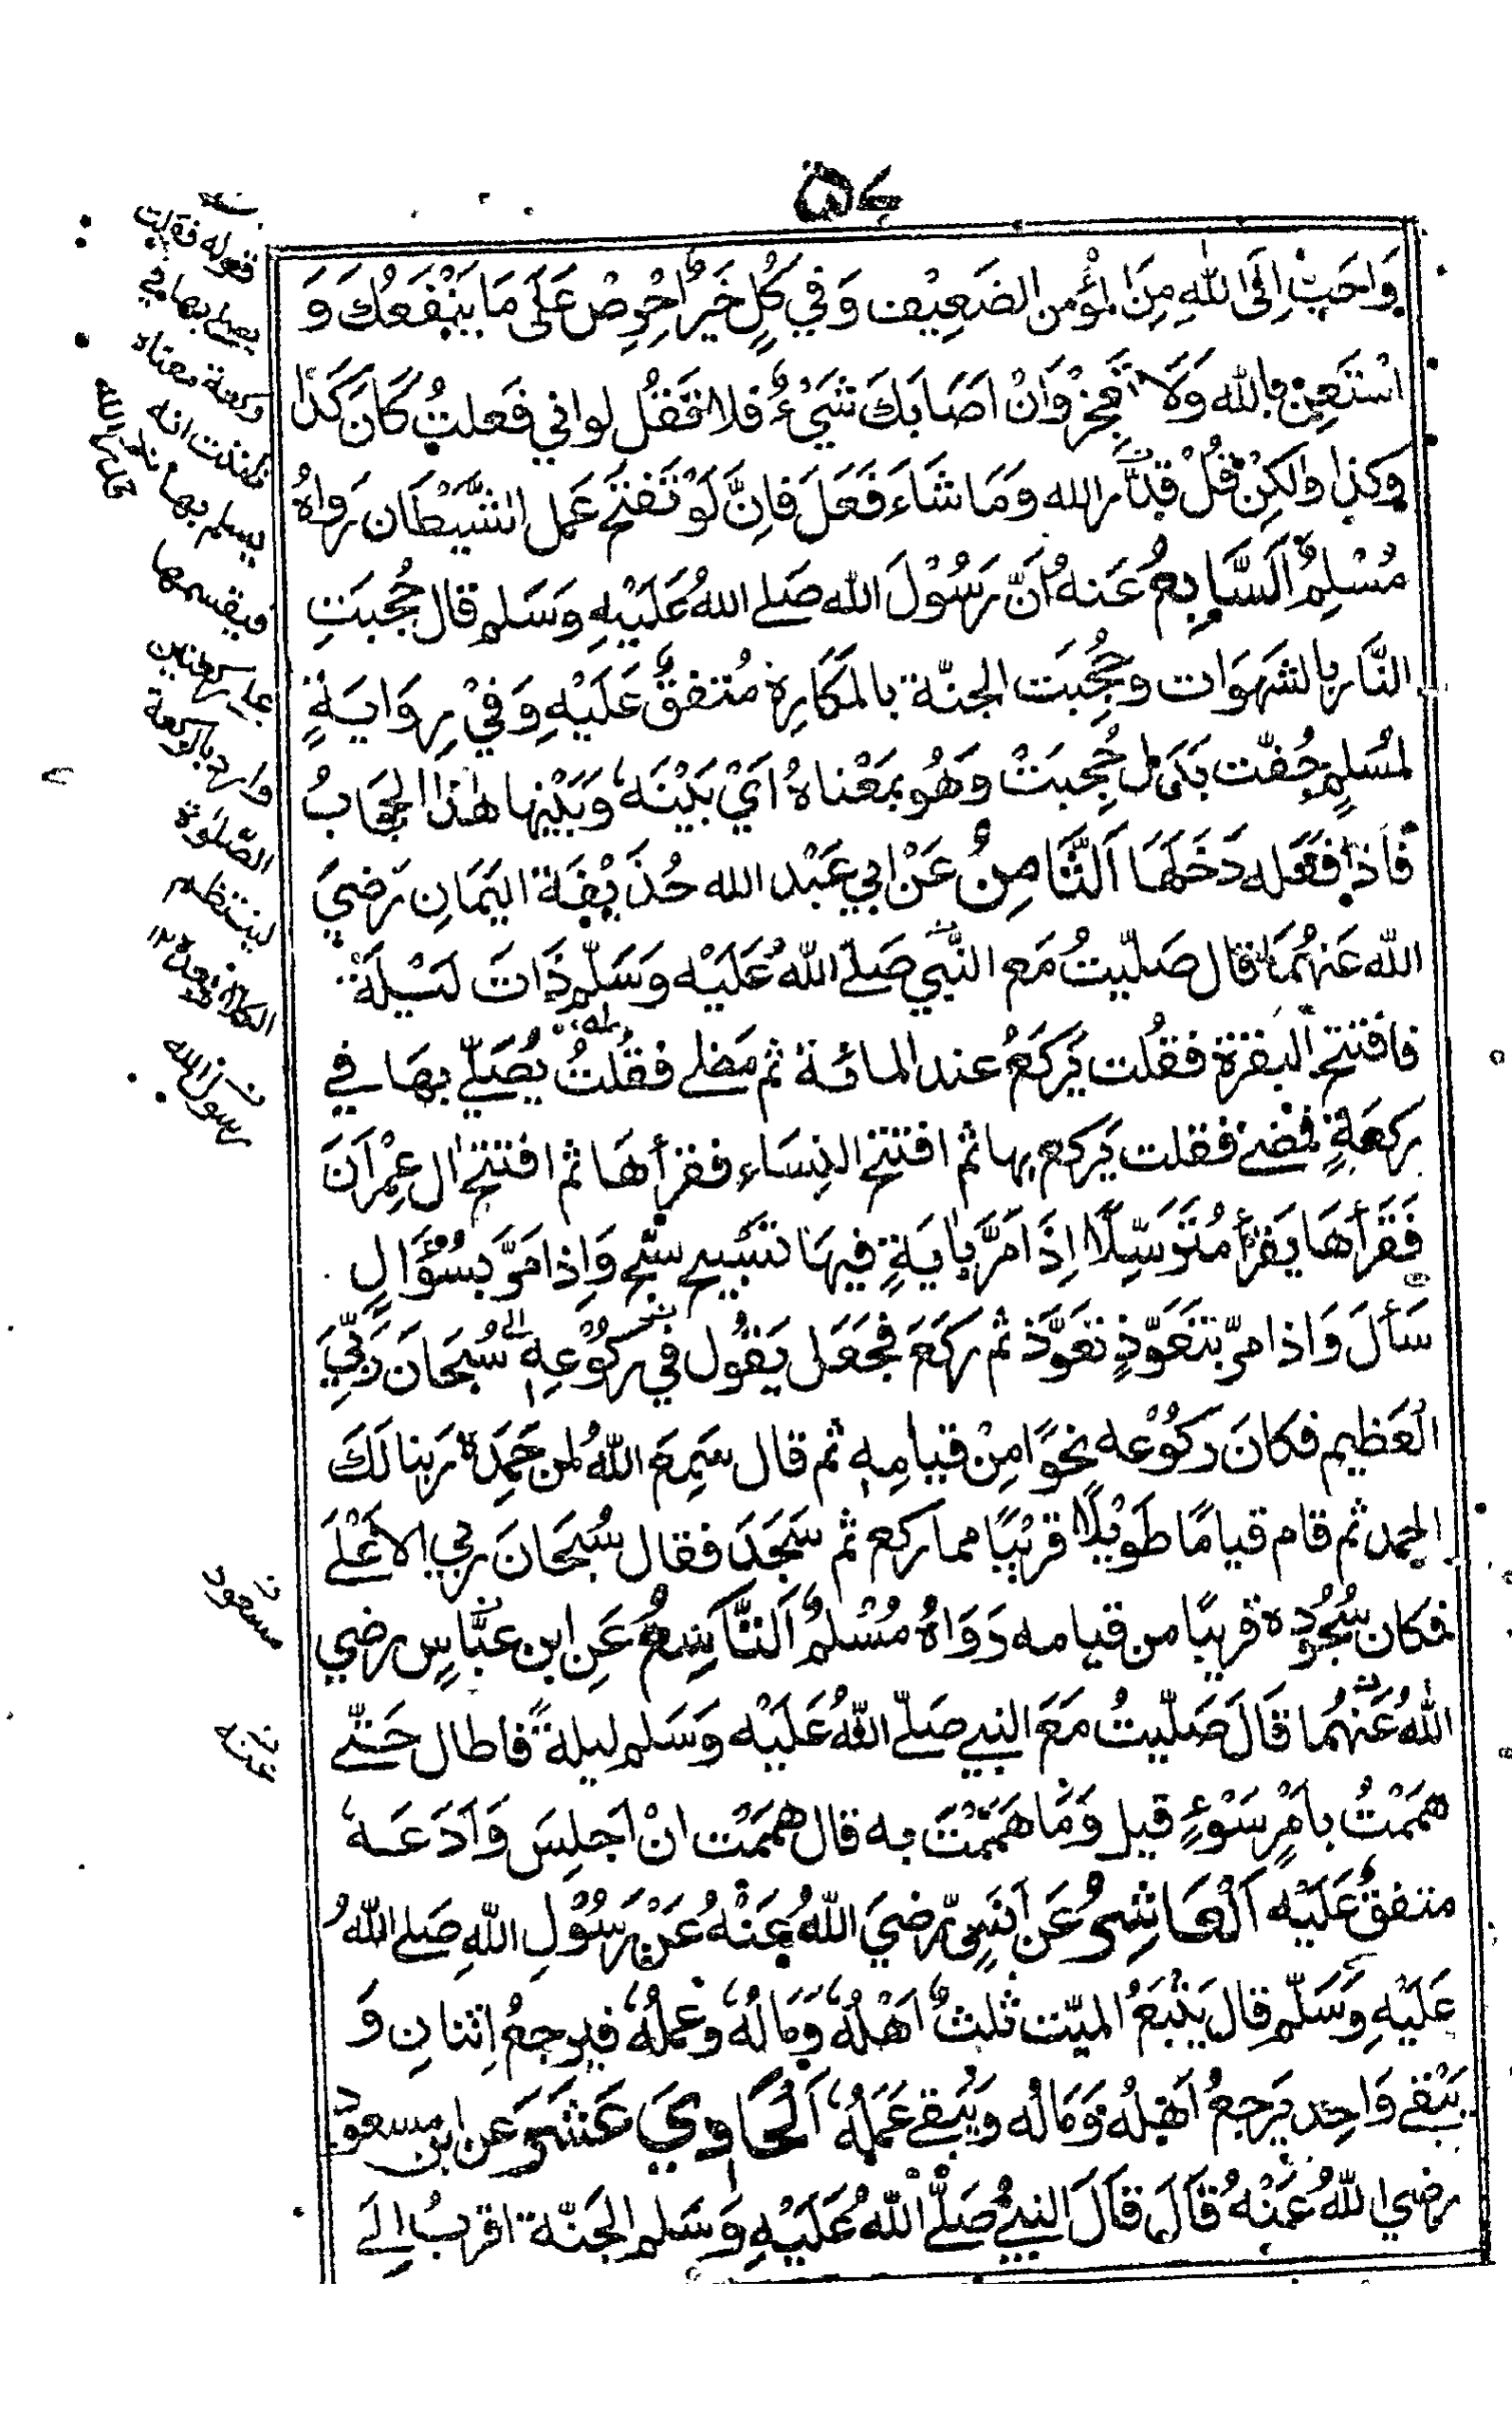 ٥٤
وَاَحَبُّ اِلَى اللهِ مِنَ المُؤْمن الضَعِيْف وَفي كُلٍ خَيرٌ اُحْرِصْ عَلَى مَا يَنْفَعُكَ وَ
اسْتَعِنْ بالله وَلَا تَعْجِزْ وَاِنْ اَصَابَكَ شَيْءٌ فلا تَقُل لو اني فَعَلتُ كَانَ كَذَا
وكذا وَلكِنْ قُلْ قدَّر الله وَمَا شَاءَ فَعَلَ فَاِنَّ لَوْ تَفتَح عَمل الشَّيْطَان رَواهُ
مُسْلِمٌ اَلسَّابِعُ عَنهُ اَنَّ رَسُوْلَ الله صَلے اللهُ عَلَيْهِ وَسَلم قال حُجبَتِ
النَّار بالشهَوَات وَحُجِبَت الجنّة بالمَكَارِهِ مُتفقٌ عَلَيْهِ وَفيْ رِوَايَةٍ
لمُسْلِمٍ حُفّت بَدَل حُجبَتْ وَهُو بمَعْنَاهُ اَيْ بَيْنَهٗ وَبَيْنها هٰذا الحِجَابُ
فاَذا فعَله دَخَلهَا اَلثَّامِنُ عَنْ ابي عَبْد الله حُذَيْفَة اليَمَانِ رَضيَ
الله عَنهُمَا قال صَلّيتُ مَع النَّبي صَلّےَ اللهُ عَلَيْه وَسَلّم ذَاتَ لَيْلَةٍ
فافتتح البقرة فقُلت يَركَعُ عند المائة ثم مَضٰے فقُلتُ يُصَلّي بهَا في
رَكعَةٍ فمَضےٰ فقلت يَركع بها ثم افتتح النِسَاء فقرأهَا ثم افتتح اٰل عِمْرَانَ
فَقَرأهَا يَقرأ مُتَرَسِّلًا اِذَا مَرَّ باٰيَةٍ فيهَا تسْبيح سبّح وَاِذا مَرَّ بسُؤَالٍ
سَأَلَ وَاذا مرّ بتَعَوّذٍ تعَوَّذ ثم رَكَعَ فجَعَل يَقُول في رُكوُعِهٖ سُبحَانَ رَبّيَ
العَظِيم فكانَ رُكوُعُه نحوًا مِنْ قيامِهٖ ثم قال سَمِعَ اللهُ لمن حَمِدَهٗ ربنا لكَ
الحمد ثم قام قيامًا طَوِيْلًا قريْبًا مما ركع ثم سَجَدَ فقال سُبحَانَ ربي الاَعْلےَ
فكان سُجُوْدهٗ قريبًا من قيامه رَوَاهُ مُسْلمٌ اَلتَّاسِعُ عَنِ ابن عبَّاسٍ رضي
اللهُ عَنهُما قَالَ صَلّيتُ مَعَ النبي صَلّےَ اللهُ عَلَيْه وَسَلم ليلةً فاطال حَتّےٰ
همَمْتُ بامْرِ سَوْءٍ قيل وَمَا هَمَمْتَ به قال هممَتْ انْ اَجلِسَ وَاَدَعَهٗ
متفقٌ عَلَيْه اَلْعَاشِرُ عَن اَنَسٍ رّضيَ اللهُ عَنْهُ عَنْ رَسُوْلِ اللهِ صَلے اللهُ
عَلَيْهِ وَسَلّم قال يَتْبَعُ الميّت ثلٰثٌ اَهْلُهٗ وَمَالُهٗ وعملُهٗ فيرجعُ اِثنانِ وَ
يَبْقےٰ وَاحِد يَرجعُ اَهْلُهٗ وَمَالُه وَيَبقےٰ عَمَلُهٗ اَلْحَاوِيَ عَشَرَ عَن ابن مسعودٍ
رضيَ اللهُ عَنْهُ قَالَ قَالَ النبيُّ صَلَّےَ اللهُ عَلَيْهِ وَسَلم الجَنّة اَقربُ اِلےَ
قوله فقلت
يصلي بها في
ركعة معناه
ظننت انه
يسلم بها
فيقسمها
على ركعتين
واراد بالركعة
الصّلوٰة
لينتظم
الكلام بعده
رسول الله
مسعود
عنه